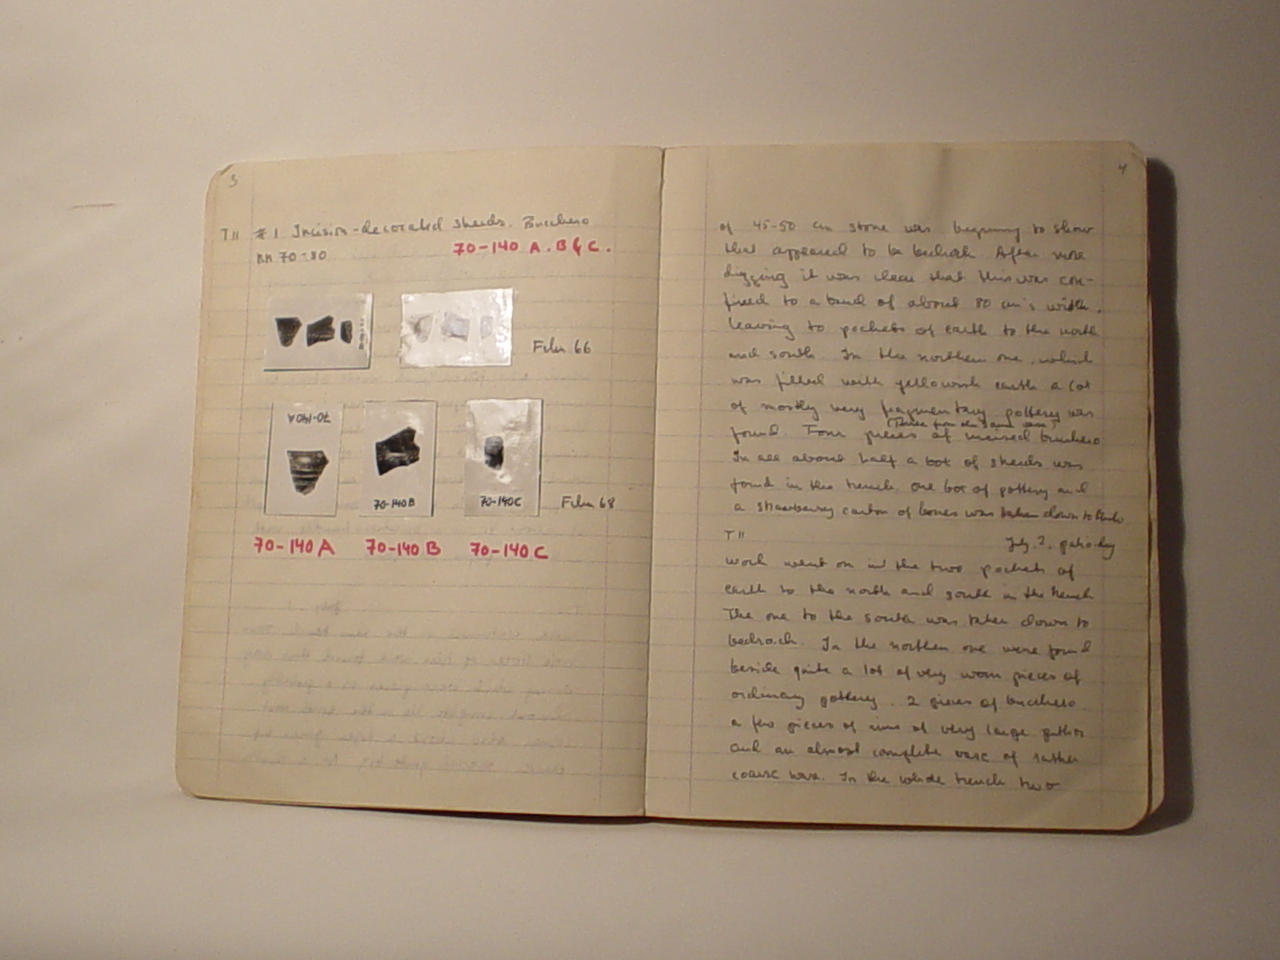 3
T11 #1 Incision-decorated sherds. Bucchero
70-80
70-140 A. B & C.
Film 66
70-140A
70-140B
70-140C
Film 68
70-140 A 70-140 B 70-140 C
4
of 45-50 cm stone was beginning to show
that appeared to be bedrock. After more
digging it was clear that this was con-
fined to a band of about 80 cm's width,
leaving to pockets of earth to the north
and south. In the northern one, which
was filled with yellowish earth a lot
of mostly very fragmentary pottery was
(Three from the same vase)
found. Four pieces of incised bucchero
In all about half a box of sherds was
found in the trench, one box of pottery and
a strawberry carton of bones was taken down to
T11
July 2,
work went on in the two pockets of
earth to the north and south in the trench
The one to the south was taken down to
bedrock. In the northern one were found
beside quite a lot of very worn pieces of
ordinary pottery, 2 pieces of bucchero
a few pieces of rims of very large pithoi
and an almost complete vase of rather
coarse ware. In the whole trench two